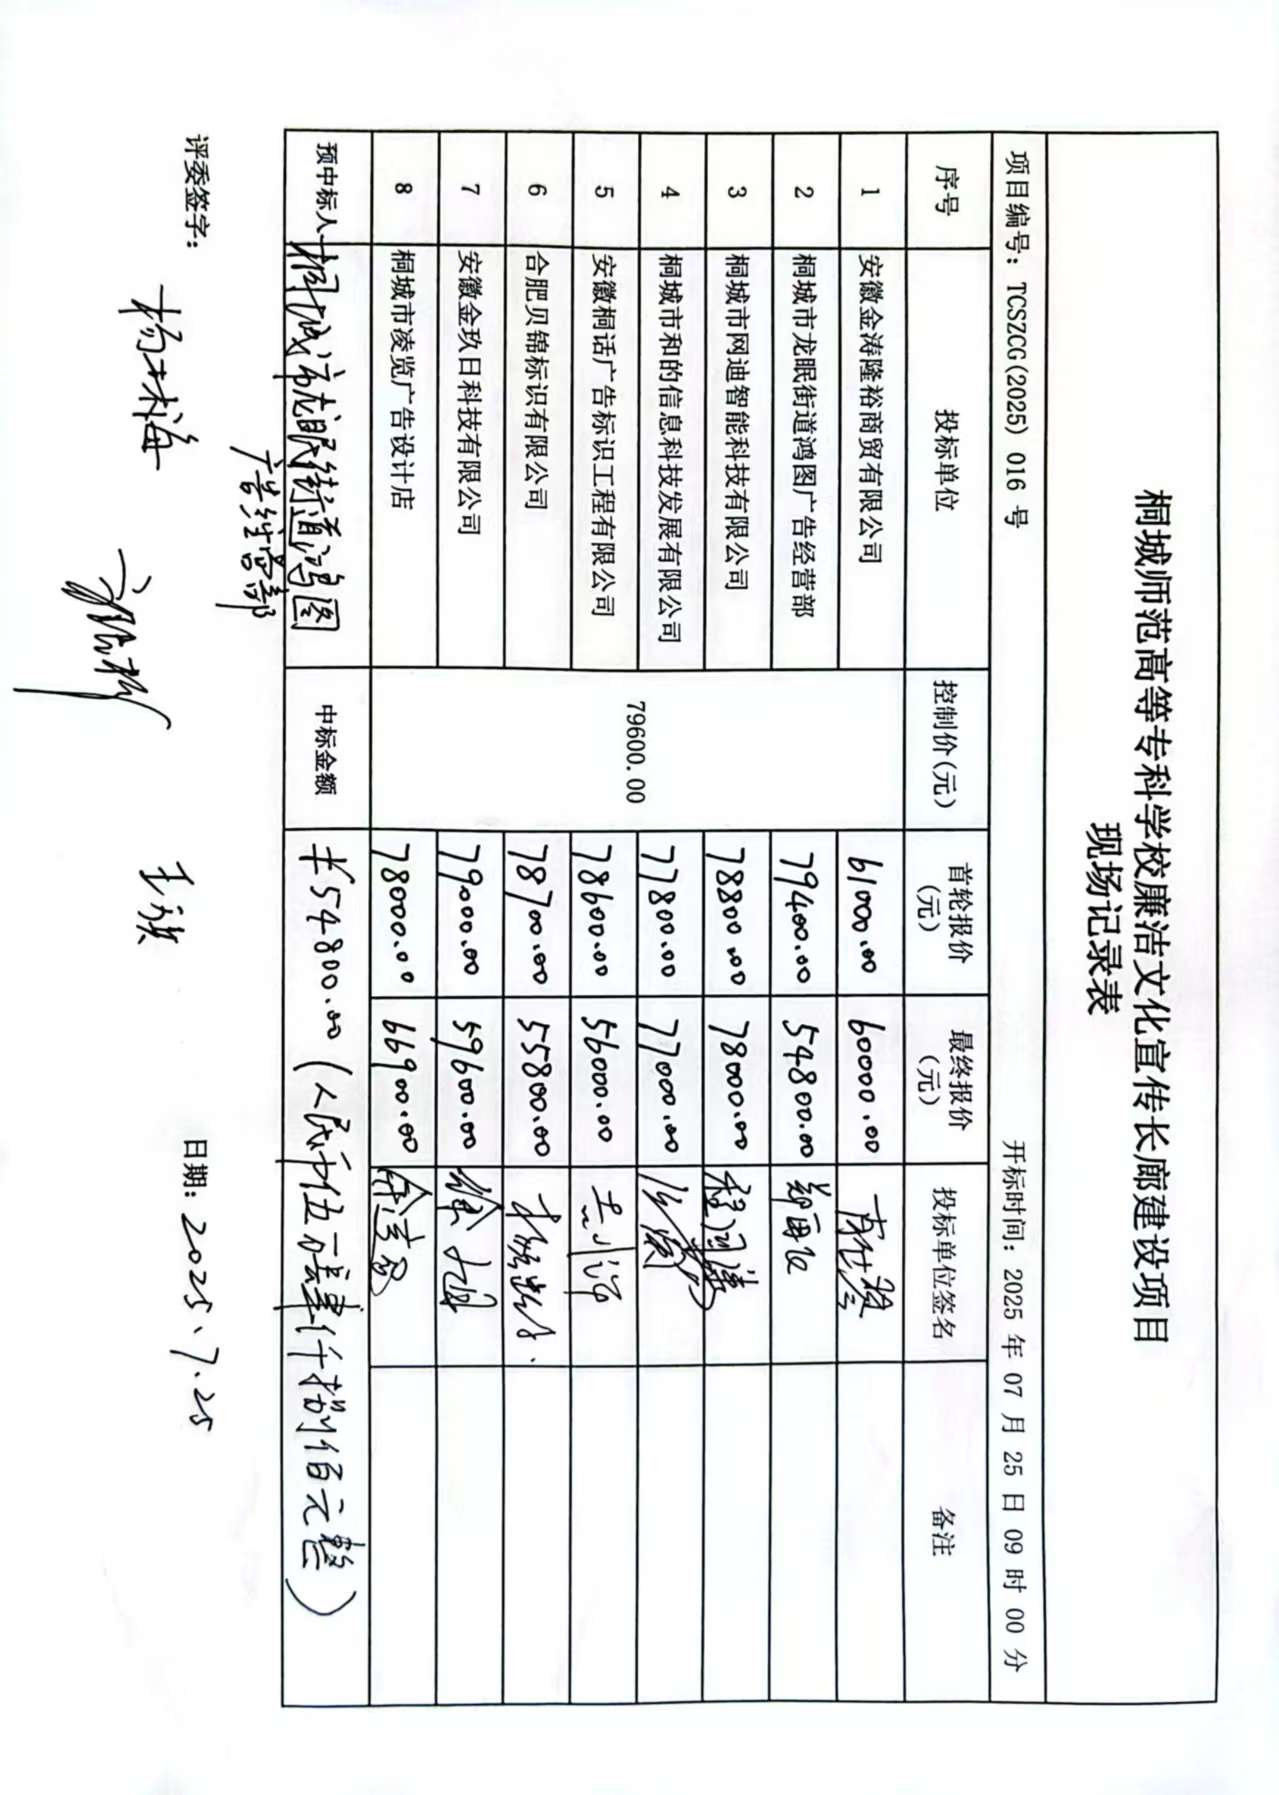 桐城师范高等专科学校廉洁文化宣传长廊建设项目
现场记录表
项目编号：TCSZCG(2025) 016 号 开标时间：2025 年 07 月 25 日 09 时 00 分
序号 投标单位 控制价(元) 首轮报价(元) 最终报价(元) 投标单位签名 备注
1 安徽金涛隆裕商贸有限公司 61000.00 60000.00
2 桐城市龙眠街道鸿图广告经营部 79400.00 54800.00
3 桐城市网迪智能科技有限公司 78800.00 78000.00
4 桐城市和的信息科技发展有限公司 77800.00 77000.00
79600.00
5 安徽桐话广告标识工程有限公司 78600.00 56000.00
6 合肥贝锦标识有限公司 78700.00 55800.00
7 安徽金玖日科技有限公司 79000.00 59600.00
8 桐城市凌览广告设计店 78000.00 66900.00
预中标人 桐城市龙眠街道鸿图广告经营部 中标金额 ¥54800.00（人民币伍万肆仟捌佰元整）
评委签字： 日期：2025、7.25